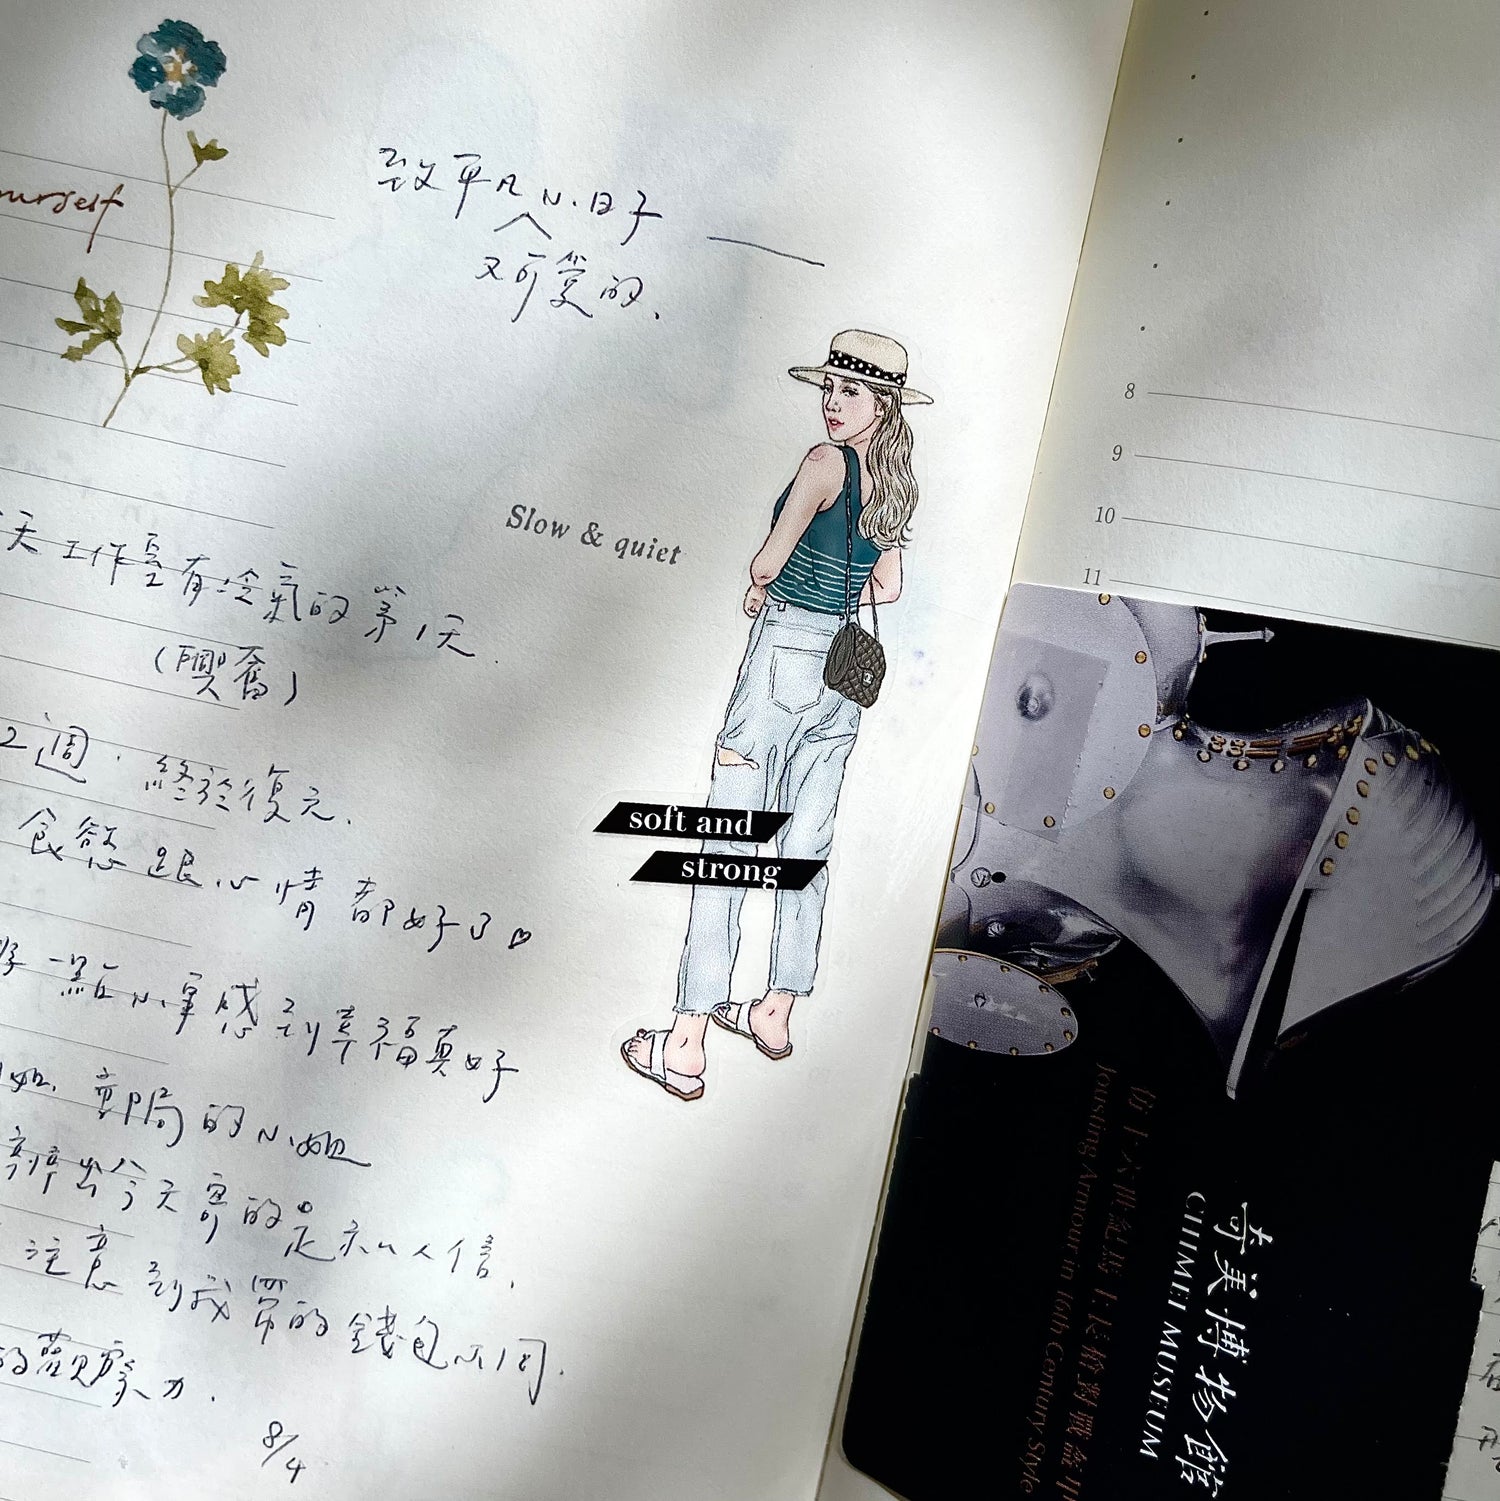 致平凡小日子
又可愛的、
Slow & quiet
天工作室有冷氣的第1天.
(興奮)
2週,終於復元.
食慾跟心情都好了♡
一點小事感到幸福真好
郵局的小姐
辨出今天寄的是私人信.
注意到我帶的錢包不同.
的觀察力.
8/4
soft and
strong
8
9
10
11
仿十六世紀馬上長槍對戰盔甲
Jousting Armour in 16th Century Style
奇美博物館
CHIMEI MUSEUM